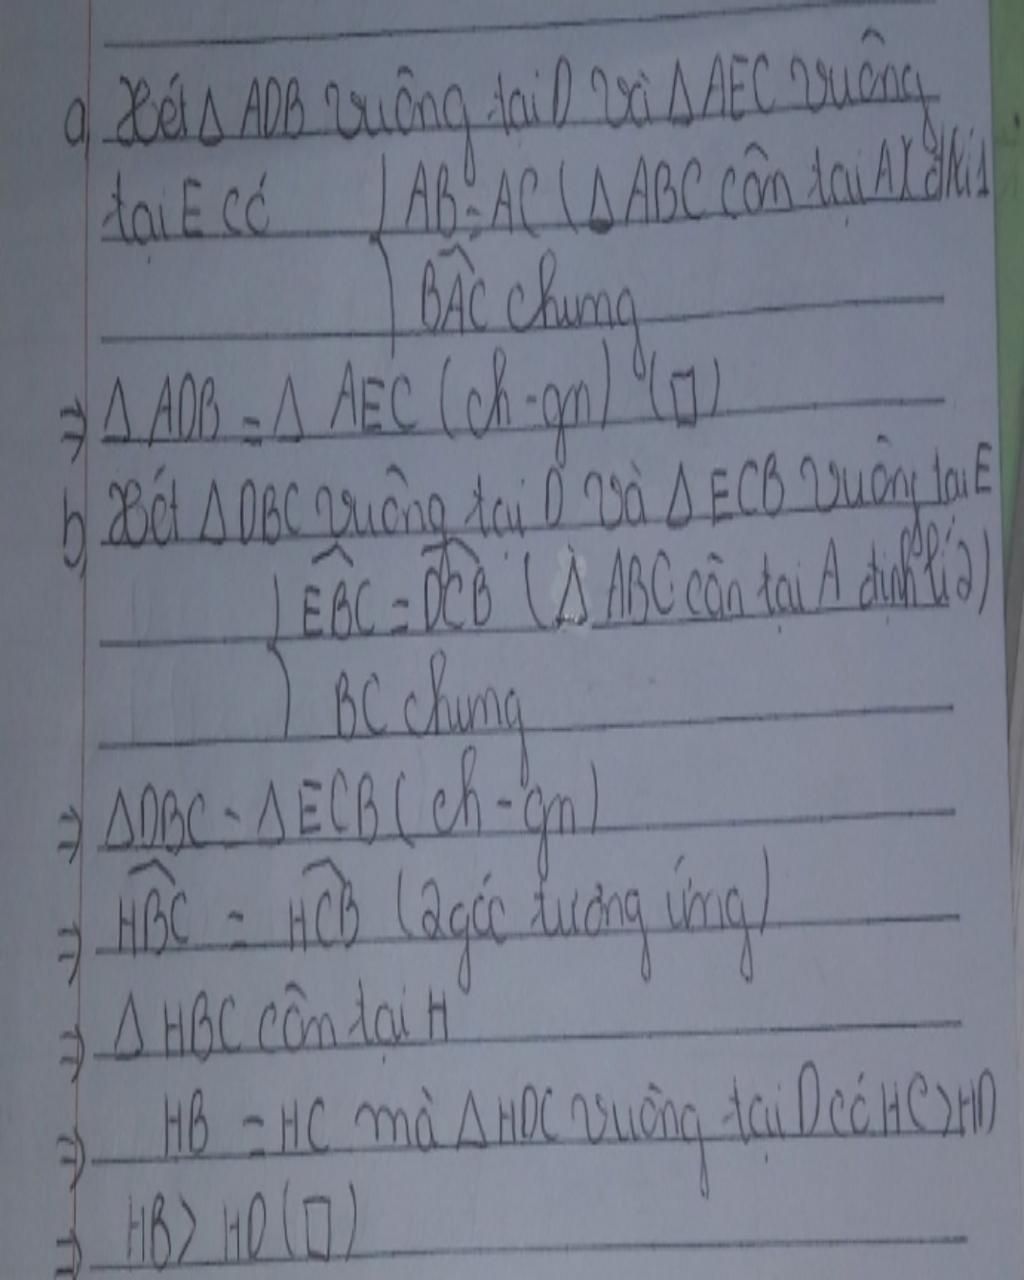 a) Xét Δ ADB vuông tại D và Δ AEC vuông
tại E có { AB = AC (Δ ABC cân tại A) (đlí 1
BAC chung
⇒ Δ ADB = Δ AEC (ch-gn) (□)
b) Xét Δ DBC vuông tại D và Δ ECB vuông tại E
{ EBC = DCB (Δ ABC cân tại A định lí 2)
BC chung
⇒ Δ DBC = Δ ECB (ch-gn)
⇒ HBC = HCB (2 góc tương ứng)
⇒ Δ HBC cân tại H
⇒ HB = HC mà Δ HDC vuông tại D có HC > HD
⇒ HB > HD (□)